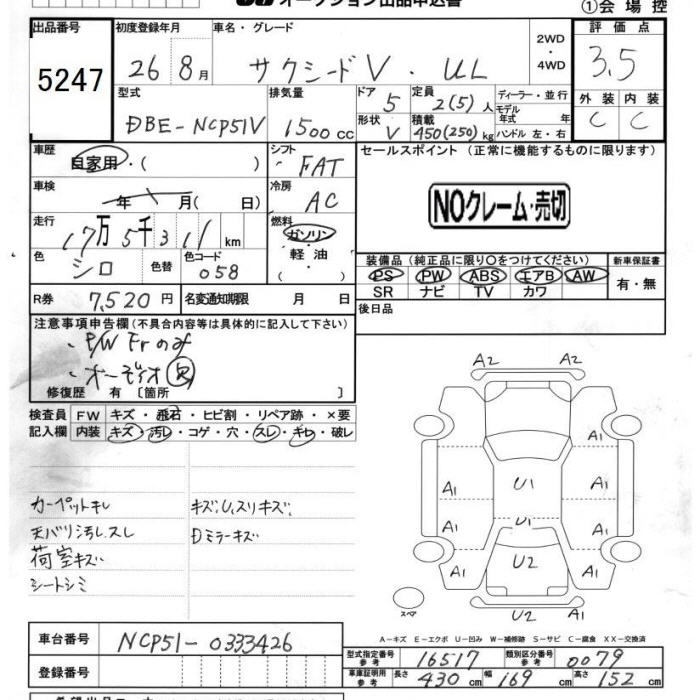 オークション出品申込書
①会場控
出品番号
5247
初度登録年月
26 8月
車名・グレード
サクシードV・UL
2WD
・
4WD
評価点
3.5
外装 内装
C C
型式
DBE-NCP51V
排気量
1500cc
ドア 5
形状 V
定員 2(5)人
積載 450(250)kg
ディーラー・並行
モデル年式 年
ハンドル 左・右
車歴
自家用・( )
シフト
FAT
車検
年 月( 日)
冷房
AC
走行
17万5千311km
燃料
ガソリン
・
軽油
・
( )
色
シロ
色替
色コード
058
R券 7,520円
名変通知期限 月 日
セールスポイント (正常に機能するものに限ります)
NOクレーム・売切
装備品(純正品に限り○をつけてください)
PS PW ABS エアB AW
SR ナビ TV カワ
新車保証書
有・無
後日品
注意事項申告欄(不具合内容等は具体的に記入して下さい)
・P/W Frのみ
・オーディオ欠
修復歴 有〔箇所 〕
検査員 FW キズ・飛石・ヒビ割・リペア跡・×要
記入欄 内装 キズ・汚レ・コゲ・穴・スレ・キレ・破レ
カーペットキレ
天バリ汚レ、スレ
荷室キズ
シートシミ
キズ、U、スリキズ、
Dミラーキズ
A2 A2
A1
A1 U1 A1
A1 U1 A1
A1 U2 A1
スペア
U2 A1
A-キズ E-エクボ U-凹み W-補修跡 S-サビ C-腐食 XX-交換済
車台番号 NCP51-0333426
登録番号
型式指定番号 参考 16517
類別区分番号 参考 0079
車庫証明用 参考 長さ 430cm 幅 169cm 高さ 152cm